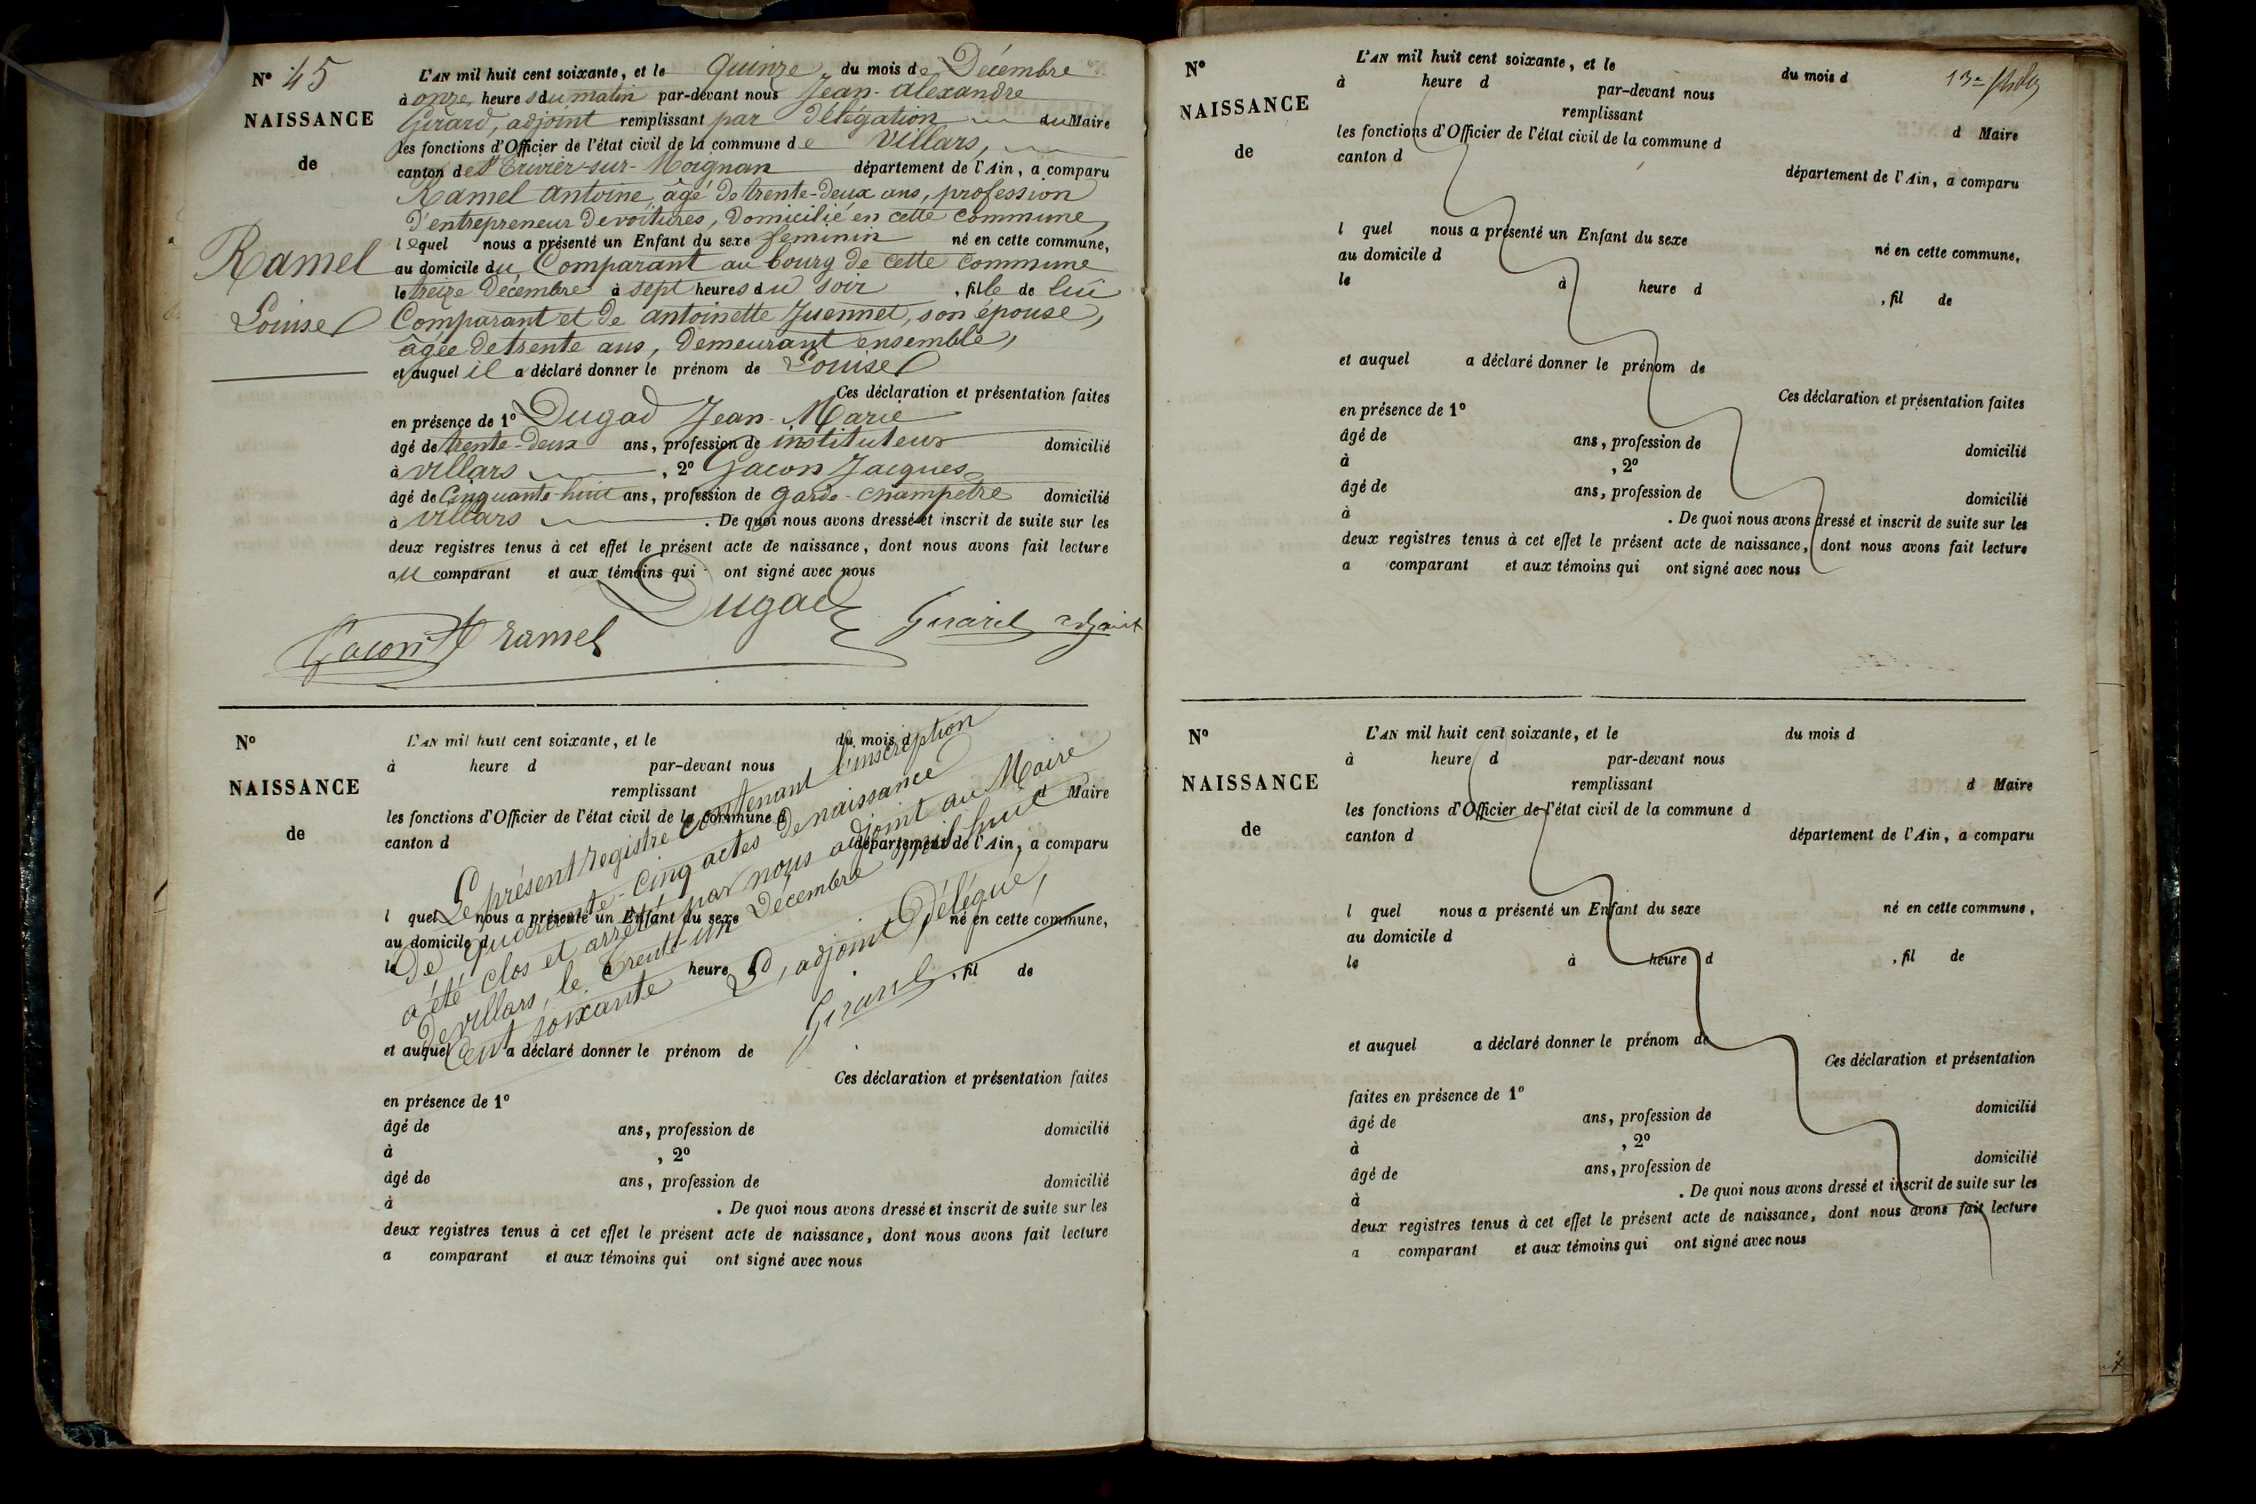 N° 45
NAISSANCE
de
Ramel
Louise
L'AN mil huit cent soixante, et le quinze du mois de Décembre
à onze heures du matin par-devant nous Jean-Alexandre
Girard, adjoint remplissant par délégation du Maire
les fonctions d'Officier de l'état civil de la commune de Villars,
canton de St Trivier-sur-Moignan département de l'Ain, a comparu
Ramel Antoine, âgé de trente-deux ans, profession
d'entrepreneur de voitures, domicilié en cette commune,
lequel nous a présenté un Enfant du sexe feminin né en cette commune,
au domicile du Comparant au bourg de cette commune
le treize Décembre à sept heures du soir, fille de lui
Comparant et de antoinette Juennet, son épouse,
âgée de trente ans, demeurant ensemble,
et auquel il a déclaré donner le prénom de Louise
Ces déclaration et présentation faites
en présence de 1° Dugad Jean-Marie
âgé de trente-deux ans, profession de instituteur domicilié
à villars, 2° Gacon Jacques
âgé de Cinquante-huit ans, profession de garde-champetre domicilié
à villars. De quoi nous avons dressé et inscrit de suite sur les
deux registres tenus à cet effet le présent acte de naissance, dont nous avons fait lecture
au comparant et aux témoins qui ont signé avec nous
Dugad
Gacon ramel Girard adjoint
N°
NAISSANCE
de
L'AN mil huit cent soixante, et le du mois d
à heure d par-devant nous
remplissant d Maire
les fonctions d'Officier de l'état civil de la commune d
canton d département de l'Ain, a comparu
l quel nous a présenté un Enfant du sexe né en cette commune,
au domicile d
le à heure d, fil de
et auquel a déclaré donner le prénom de
Ces déclaration et présentation faites
en présence de 1°
âgé de ans, profession de domicilié
à, 2°
âgé de ans, profession de domicilié
à. De quoi nous avons dressé et inscrit de suite sur les
deux registres tenus à cet effet le présent acte de naissance, dont nous avons fait lecture
a comparant et aux témoins qui ont signé avec nous
Le présent registre contenant l'inscription
de quarante-cinq actes de naissance
a été clos et arrêté par nous adjoint au Maire
de villars, le trente-un décembre mil huit
cent soixante
adjoint Délégué,
Girard
N°
NAISSANCE
de
L'AN mil huit cent soixante, et le du mois d
à heure d par-devant nous
remplissant d Maire
les fonctions d'Officier de l'état civil de la commune d
canton d département de l'Ain, a comparu
l quel nous a présenté un Enfant du sexe né en cette commune,
au domicile d
le à heure d, fil de
et auquel a déclaré donner le prénom de
Ces déclaration et présentation faites
en présence de 1°
âgé de ans, profession de domicilié
à, 2°
âgé de ans, profession de domicilié
à. De quoi nous avons dressé et inscrit de suite sur les
deux registres tenus à cet effet le présent acte de naissance, dont nous avons fait lecture
a comparant et aux témoins qui ont signé avec nous
N°
NAISSANCE
de
L'AN mil huit cent soixante, et le du mois d
à heure d par-devant nous
remplissant d Maire
les fonctions d'Officier de l'état civil de la commune d
canton d département de l'Ain, a comparu
l quel nous a présenté un Enfant du sexe né en cette commune,
au domicile d
le à heure d, fil de
et auquel a déclaré donner le prénom de
Ces déclaration et présentation
faites en présence de 1°
âgé de ans, profession de domicilié
à, 2°
âgé de ans, profession de domicilié
à. De quoi nous avons dressé et inscrit de suite sur les
deux registres tenus à cet effet le présent acte de naissance, dont nous avons fait lecture
a comparant et aux témoins qui ont signé avec nous